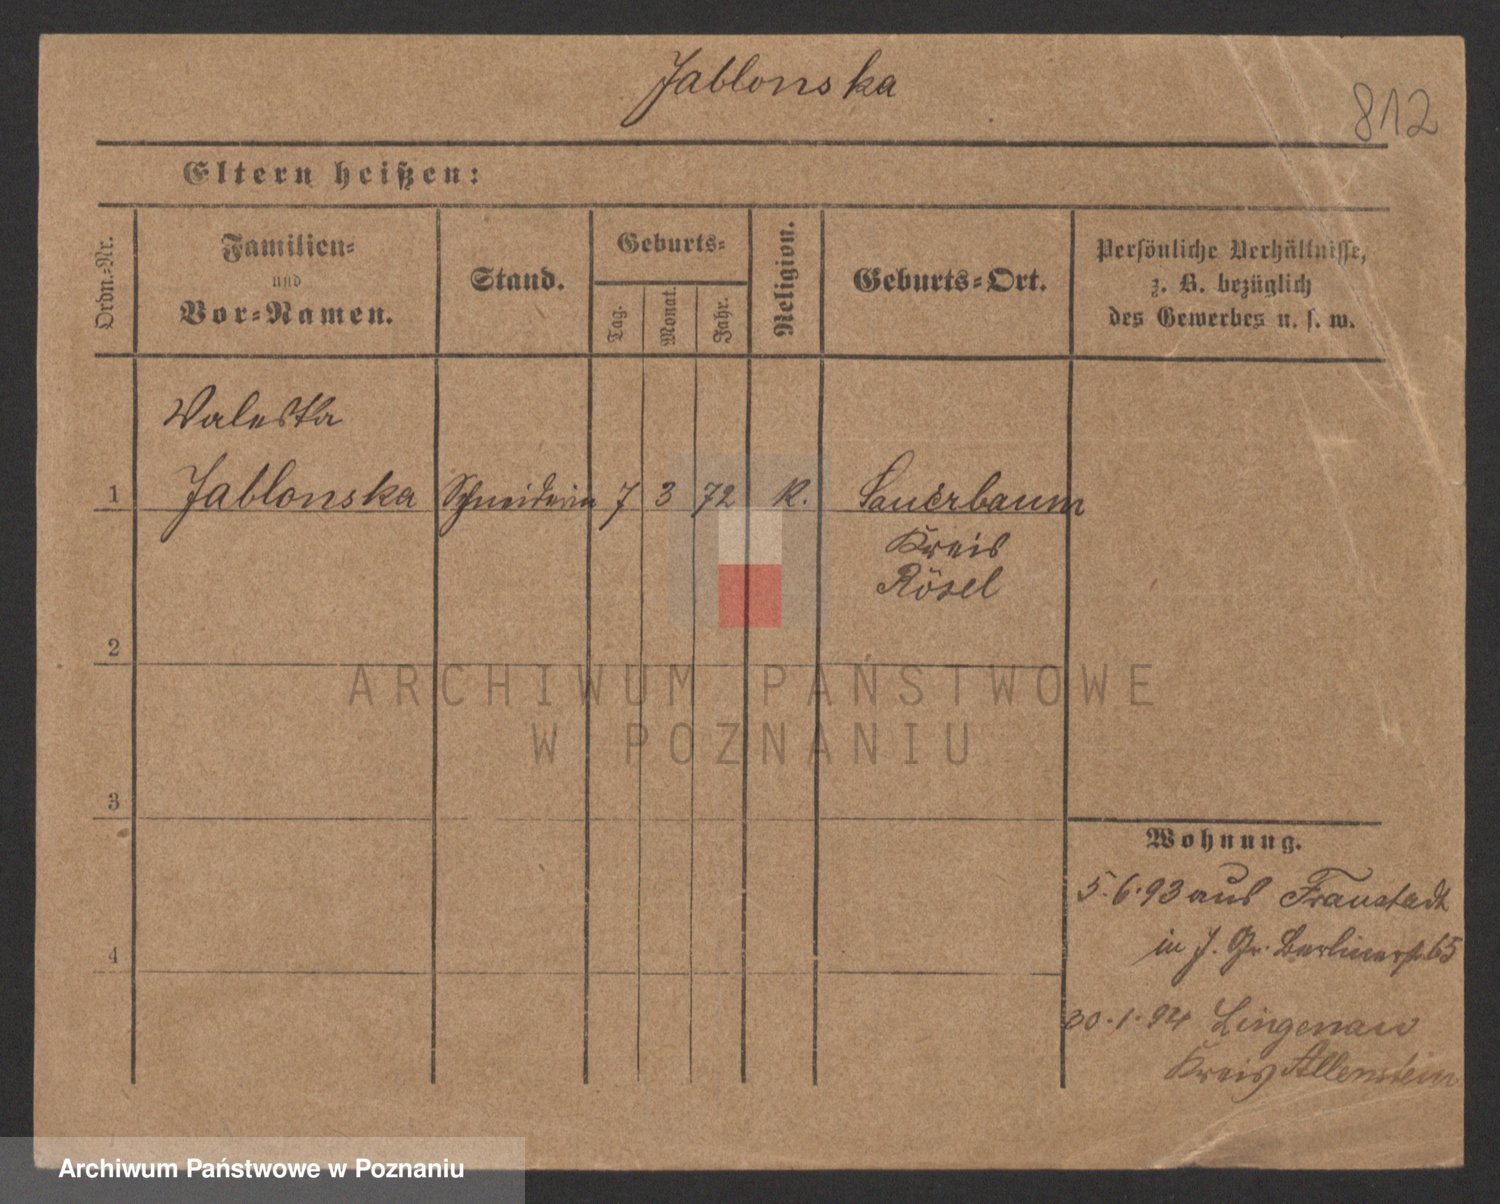 Jablonska
812
Eltern heißen:
Ordn.-Nr.
Familien-
und
Vor-Namen.
Stand.
Geburts-
Tag.
Monat.
Jahr.
Religion.
Geburts-Ort.
Persönliche Verhältnisse,
z. B. bezüglich
des Gewerbes u. s. w.
Valeska
1 Jablonska Schneiderin 7 3 72 K. Sauerbaum
Kreis
Rösel
2
3
4
Wohnung.
5.6.93 aus Fraustadt
in J. Gr. Berlinerstr. 65
30.1.94 Lingenau
Kreis Allenstein
ARCHIWUM PAŃSTWOWE
W POZNANIU
Archiwum Państwowe w Poznaniu